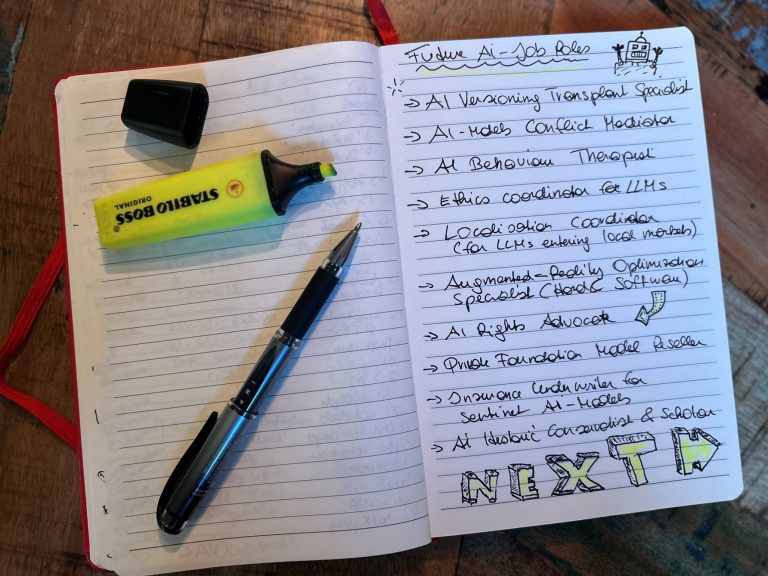 STABILO BOSS®
ORIGINAL
Future Ai-Job Roles
→ AI Versioning Transplant Specialist
→ AI-Models Conflict Mediator
→ AI Behaviour Therapist
→ Ethics coordinator for LLMs
→ Localisation Coordinator
(for LLMs entering local markets)
→ Augmented-Reality Optimization
Specialist (Hard & Software)
→ AI Rights Advocate
→ Private Foundation Model Reseller
→ Insurance Underwriter for
Sentinet AI-Models
→ Ai Historic Conservatist & Scholar
NEXT